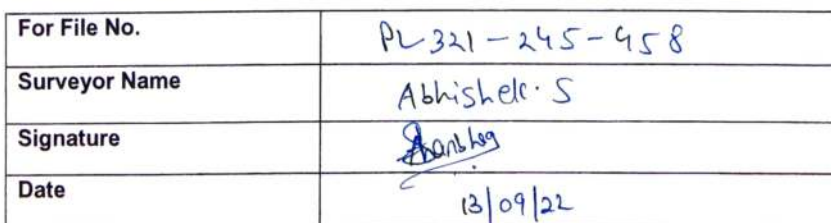 For File No. PL321-245-458
Surveyor Name Abhishek. S
Signature
Date 13/09/22